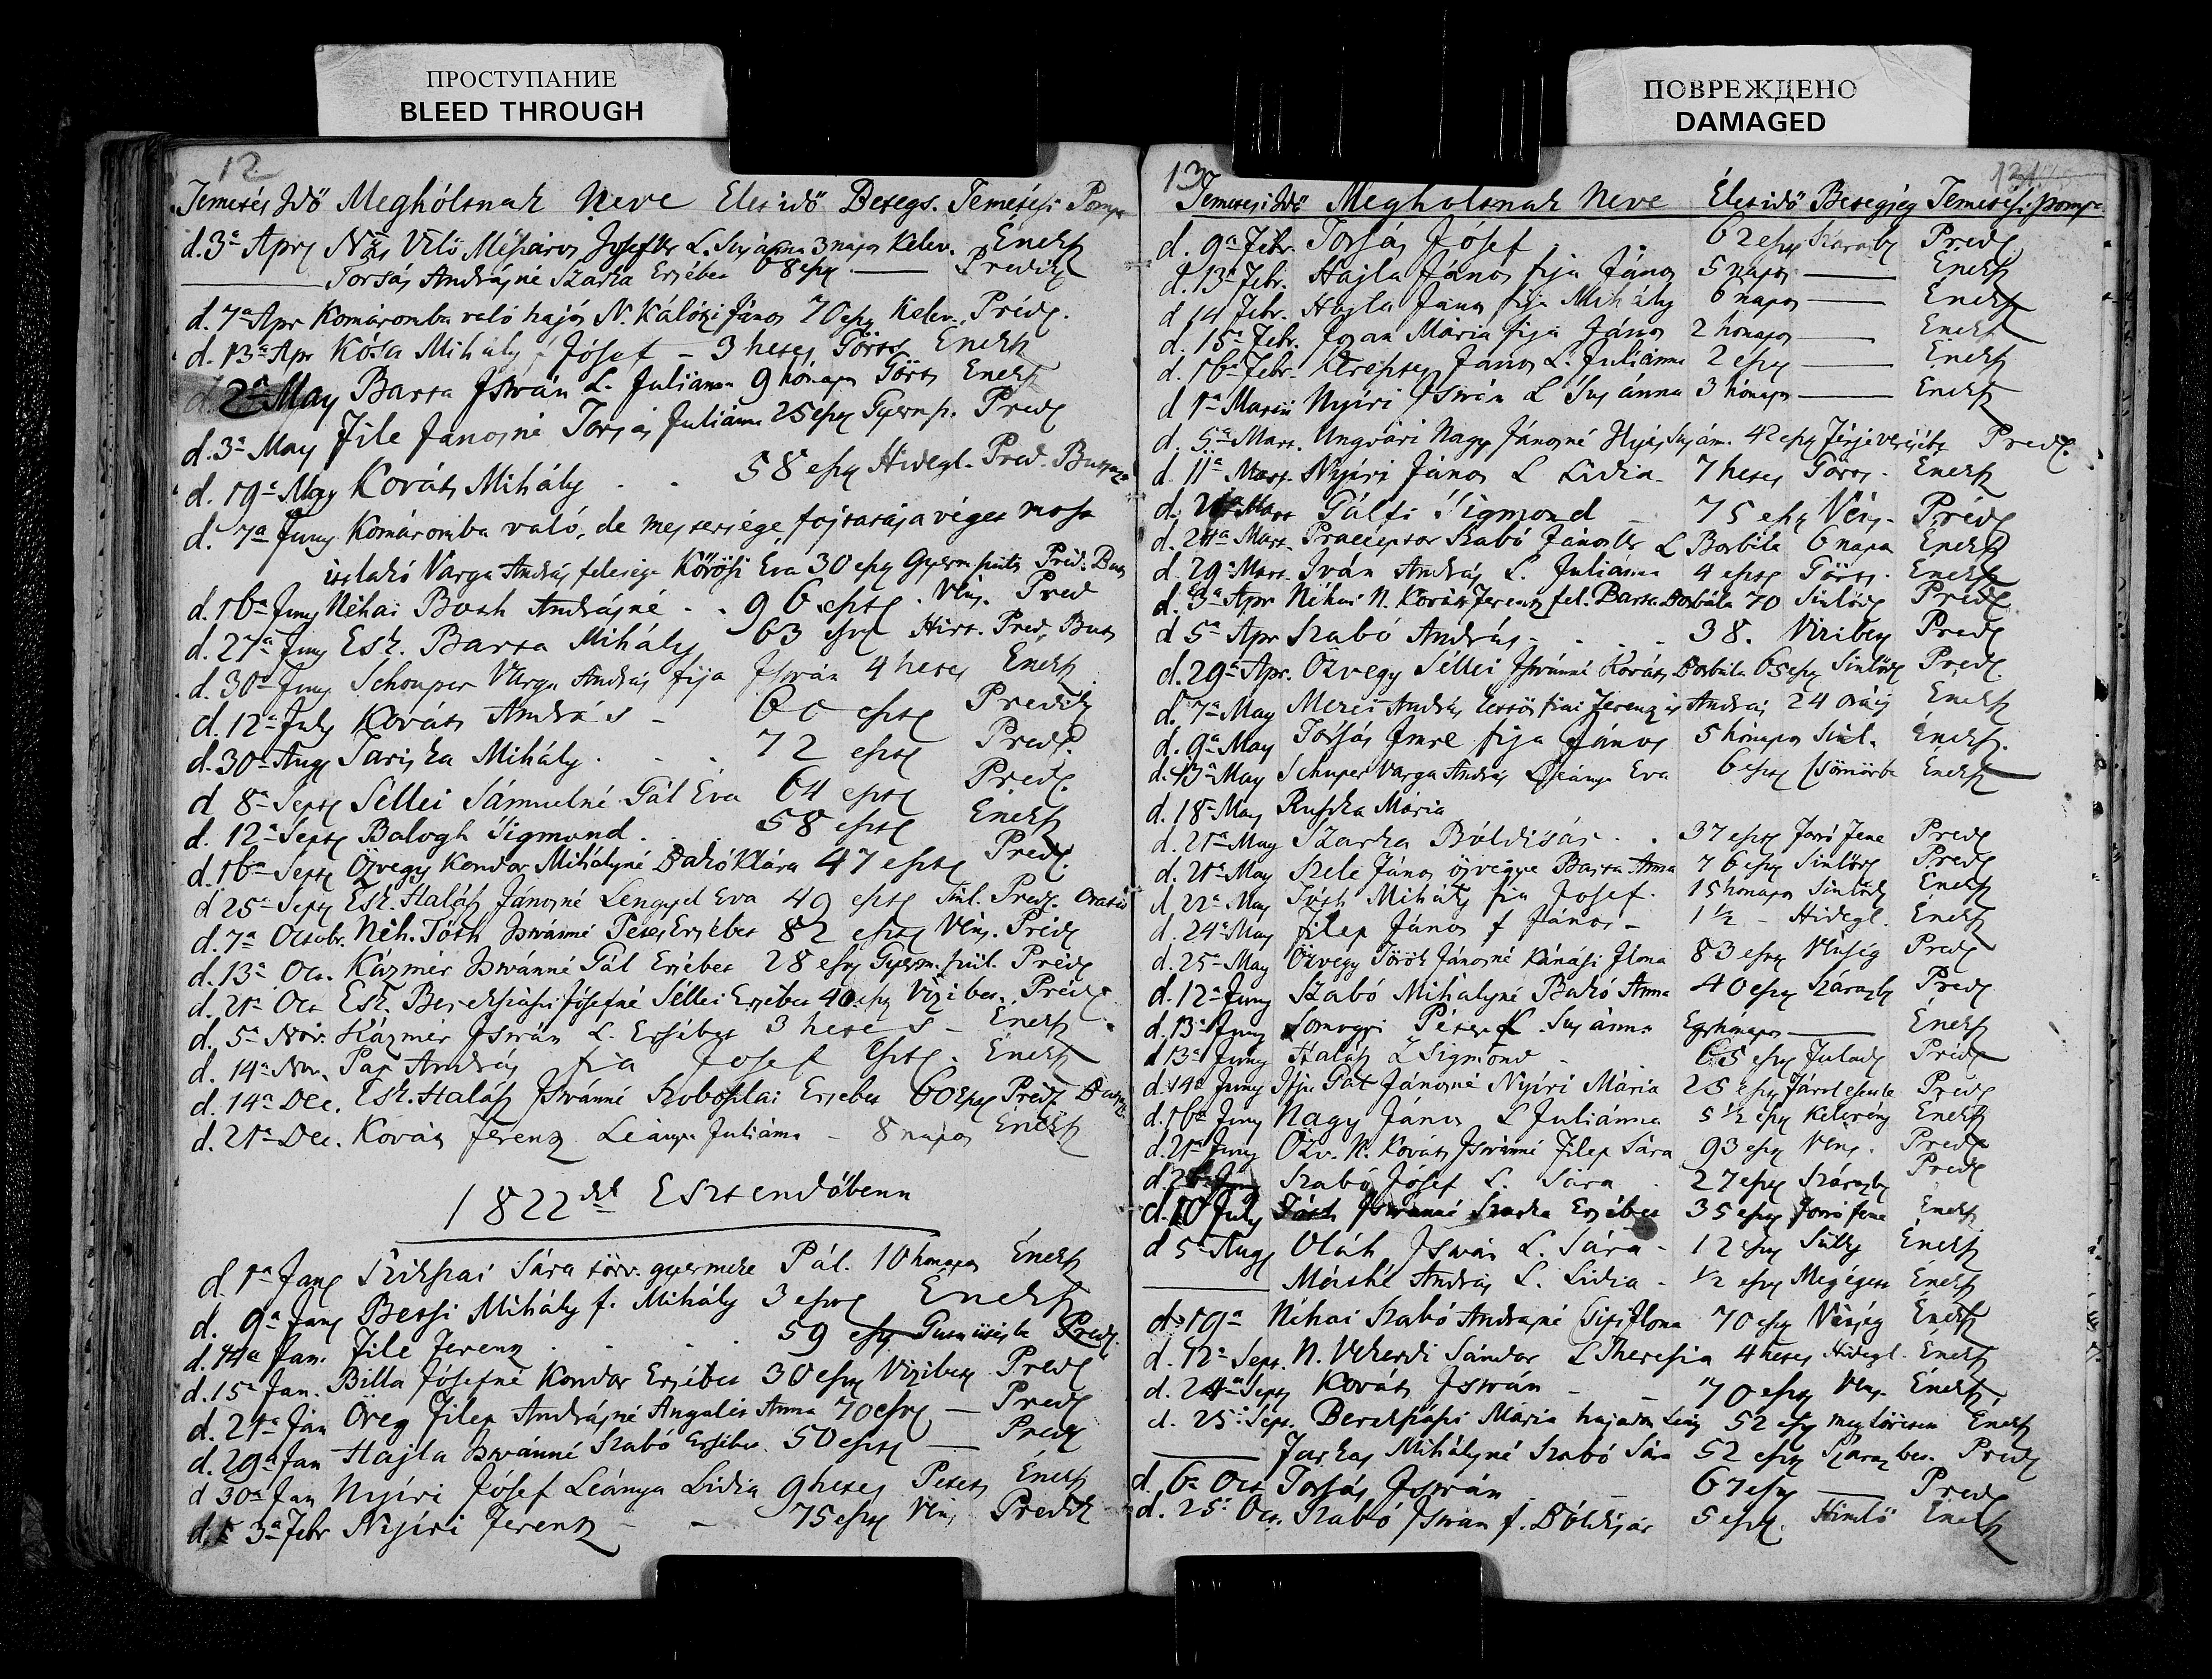 ПРОСТУПАНИЕ
BLEED THROUGH
ПОВРЕЖДЕНО
DAMAGED
12
Temetés Idő Meghóltnak Neve Élet idő Betegs. Temetési Pompa
d. 3a Apr József L. Susánna 3 napos Kelev. Éneksz
Torsás Andrásné Szarka Ersébet 68 eszt — Predik
d. 7a Apr Komáromba való hajós N. Kálózi János 70 eszt Kelev. Préd.
d. 13a Apr Kósa Mihály f József – 3 hetes Görts Éneksz
d. 2a May Barta István L. Juliánna 9 hónapos Görts Éneksz
d. 3a May File Jánosné Torsás Juliánna 25 eszt Gyerm sz. Pred
d. 19a May Kováts Mihály . . 58 eszt Hidegl. Pred. Butsuzt
d. 7a Juny Komáromba való, de mestersége folytatása véget most
itt lakó Varga András felesége Kőrösi Éva 30 eszt Gyerm szülés Préd: But
d. 16a Juny Néhai Both Andrásné . . 96 eszt . Vén. Pred
d. 27a Juny Esk. Barta Mihály 63 eszt Hirt. Pred, But
d. 30a Juny Schouper Varga András fija István 4 hetes Éneksz
d. 12a July Kováts András – 60 eszt Predik
d. 30a Aug Tariska Mihály . . . 72 eszt Pred.
d 8a Sept Séllei Sámuelné Gál Éva 64 eszt Préd.
d. 12a Sept Balogh Sigmond . . . 58 eszt Éneksz
d. 16a Sept Özvegy Kondor Mihályné Bakó Klára 47 eszt Pred.
d 25a Sept Esk. Halász Jánosné Lengyel Éva 49 eszt Sinl. Pred. Oratio
d. 7a Octobr. Néh. Tóth Istvánné Péter Ersébet 82 eszt Vén. Préd
d. 13a Oct. Kázmér Istvánné Gál Ersébet 28 eszt Gyerm. szül. Préd
d. 21a Oct Esk. Berekszászi Jósefné Séllei Ersébet 40 eszt Vizibet. Préd
d. 5a Nov. Kázmér István L. Ersébet 3 hetes – Éneksz
d. 14a Nov. Pap András fia Josef eszt. Éneksz
d. 14a Dec. Esk. Halász Istvánné Szoboszlai Ersébet 60 eszt Préd
d. 21a Dec. Kováts Ferentz Leánya Juliánna – 8 napos Éneksz
1822dik Esztendőbenn
d. 1a Jan Sikszai Sára törv. gyermeke Pál. 10 hónapos Éneksz
d. 9a Jan Bessi Mihály f. Mihály 3 eszt Éneksz
d. 14a Jan. File Ferentz . . . 59 eszt Guta ütésbe Pred.
d. 15a Jan. Billa Jósefné Kondor Ersébet 30 eszt Vizibet Pred
d. 21a Jan Öreg Filep Andrásné Angalit Anna 70 eszt — Pred
d. 29a Jan Hajla Istvánné Szabó Ersébet 50 eszt — Pred
d 30a Jan Nyíri József Leánya Lidia 9 hetes Petets Éneksz
d. 3a Febr Nyíri Ferentz – – 75 eszt Vén Predik
13
Temetési Idő Meghóltnak Neve Élet idő Betegség Temetési pompa
d. 9a Febr. Torsás Jósef . . 62 eszt Szarazb Préd
d. 13a Febr. Hajla János fija János 5 napos — Éneksz
d 14 Febr. Hajla János fija Mihály 6 napos — Éneksz
d. 15a Febr. Mária fija János 2 hónapos — Éneksz
d. 16a Febr. János L. Juliánna 2 eszt — Éneksz
d 1a Martii Nyíri István L Susánna 3 hónapos — Éneksz
d. 5a Mart. Ungvári Nagy Jánosné Susán. 42 eszt Pred.
d. 11a Mart. Nyíri János L Lidia – 7 hetes Görts – Éneksz
d. 21a Mart Gálfi Sigmond – 75 eszt Vén – Préd
d. 24a Mart. Praeceptor Szabó János L Borbála 6 napos Éneksz
d. 29a Mart. Iván András L. Juliánna 4 eszt Görts. Éneksz
d. 3a Apr Néhai N. Kováts Ferentz fel. Barta Borbála 70 Sinlőd Préd
d 5a Apr Szabó András – . . – 38. Vizibet Pred
d. 29a Apr. Özvegy Séllei Istvánné Kováts Borbála 65 eszt Sinlőd Pred.
d. 7a May András kettős fiai Ferentz és András 24 óráig Éneksz
d. 9a May Torsás Imre fija János 5 hónapos Sinl. Éneksz.
d. 13a May Schuper Varga András Leánya Éva 6 eszt Éneksz
d. 18a May Ruszka Mária
d. 21a May Szarka Bóldisár . . 37 eszt Forró Fene Pred
d. 21a May Szele János özvegye Barta Anna 76 eszt Sinlőd Pred
d. 22a May Tóth Mihály fia Josef. 15 hónapos Sinlőd Éneksz
d. 24a May Filep János f János – 1 1/2 – Hidegl. Éneksz
d. 25a May Özvegy Török Jánosné Kánási Ilona 83 eszt Vénség Pred
d. 12a Juny Szabó Mihályné Bakó Anna 40 eszt Szárazb Pred
d. 13a Juny Somogyi Péter L. Susánna Egy hónapos — Éneksz
d 13a Juny Halász Zsigmond – . 65 eszt Fulad Préd
d. 14a Juny Ifju Gál Jánosné Nyíri Mária 25 eszt Pred
d. 16a Juny Nagy János L Juliánna 5 1/2 eszt Kelevény Éneksz
d. 21a Juny Özv. N. Kováts Istvánné Filep Sára 93 eszt Vén. Pred
Szabó Jósef L. Sára . 27 eszt Szárazb Pred
d. 10 July Tóth Istvánné Szarka Ersébet 35 eszt Forró fene Éneksz
d 5a Aug Oláh István L. Sára – 12 eszt Sülly Éneksz
— András L. Lidia – 1/2 eszt Megégett Éneksz
d. 19a Néhai Szabó Andrásné Ilona 70 eszt Vénség Éneksz
d. 12a Sept. N. Vekerdi Sándor L Theresia 4 hetes Hidegl. Éneksz
d. 24a Sept Kováts István – – 70 eszt Vén. Éneksz
d. 25a Sept. Berekszászi Mária hajadon Leány 52 eszt Éneksz
— Farkas Mihályné Szabó Sára 52 eszt Szarazbet. Pred
d. 6a Oct Torsás István . – 67 eszt — Pred
d. 25a Oct. Szabó István f. Bóldisár 5 eszt. Himlő Éneksz